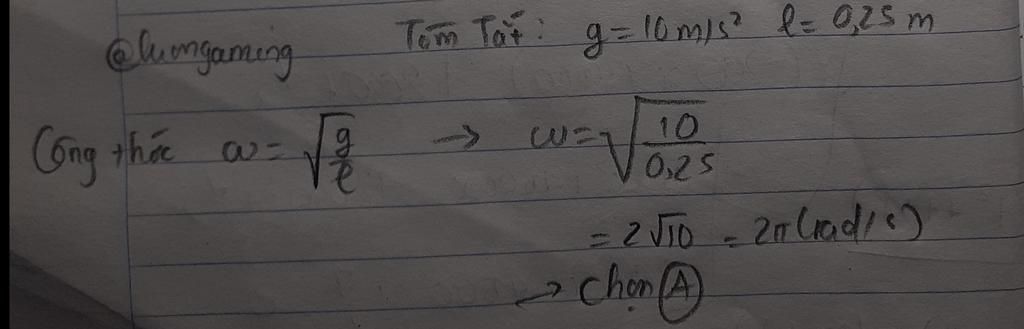 @luongaming
Tóm Tắt: g=10m/s² l= 0,25 m
Công thức ω= √(g/l) → ω= √(10/0,25)
= 2√10 = 2π(rad/s)
→ Chọn A